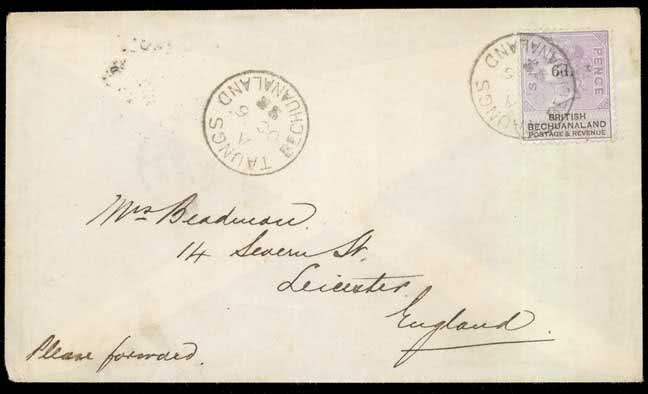 TAUNGS
BECHUANALAND
TAUNGS
SIX PENCE
6d.
BRITISH
BECHUANALAND
POSTAGE & REVENUE
Mrs Beadman.
14 Severn St.
Leicester
England.
Please forward.